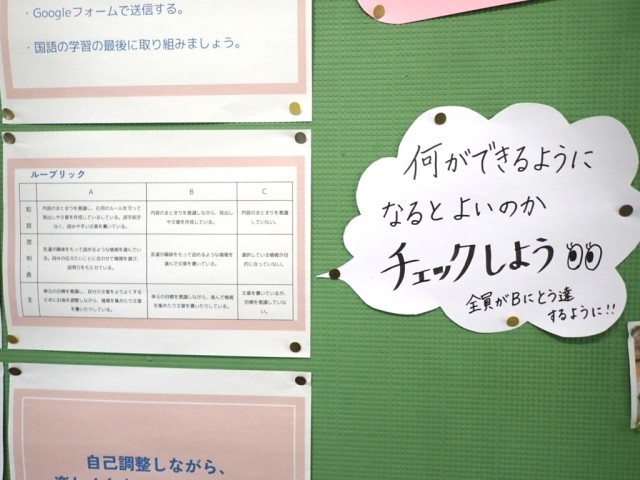 ・Googleフォームで送信する。
・国語の学習の最後に取り組みましょう。
ルーブリック
A B C
知・技
内容のまとまりを意識し、引用のルールを守って
見出しや文章を作成している。誤字脱字
はなく、読みやすい文章を書いている。
内容のまとまりを意識しながら、見出し
や文章を作成している。
内容のまとまりを意識
していない。
思・判・表
友達が興味をもって読めるような情報を選んでいる。
自分の伝えたいことに合わせて情報を選び、
説得力をもたせている。
友達が興味をもって読めるような情報を
選んで文章を書いている。
選択している情報が目
的に合っていない。
主
単元の目標を意識し、自分の文章をよりよくする
ために計画を調整しながら、情報を集めたり文章
を書いたりしている。
単元の目標を意識しながら、進んで情報
を集めたり文章を書いたりしている。
文章を書いているが、
目標を意識していな
い。
何ができるように
なるとよいのか
チェックしよう
全員がBにとう達
するように!!
自己調整しながら、